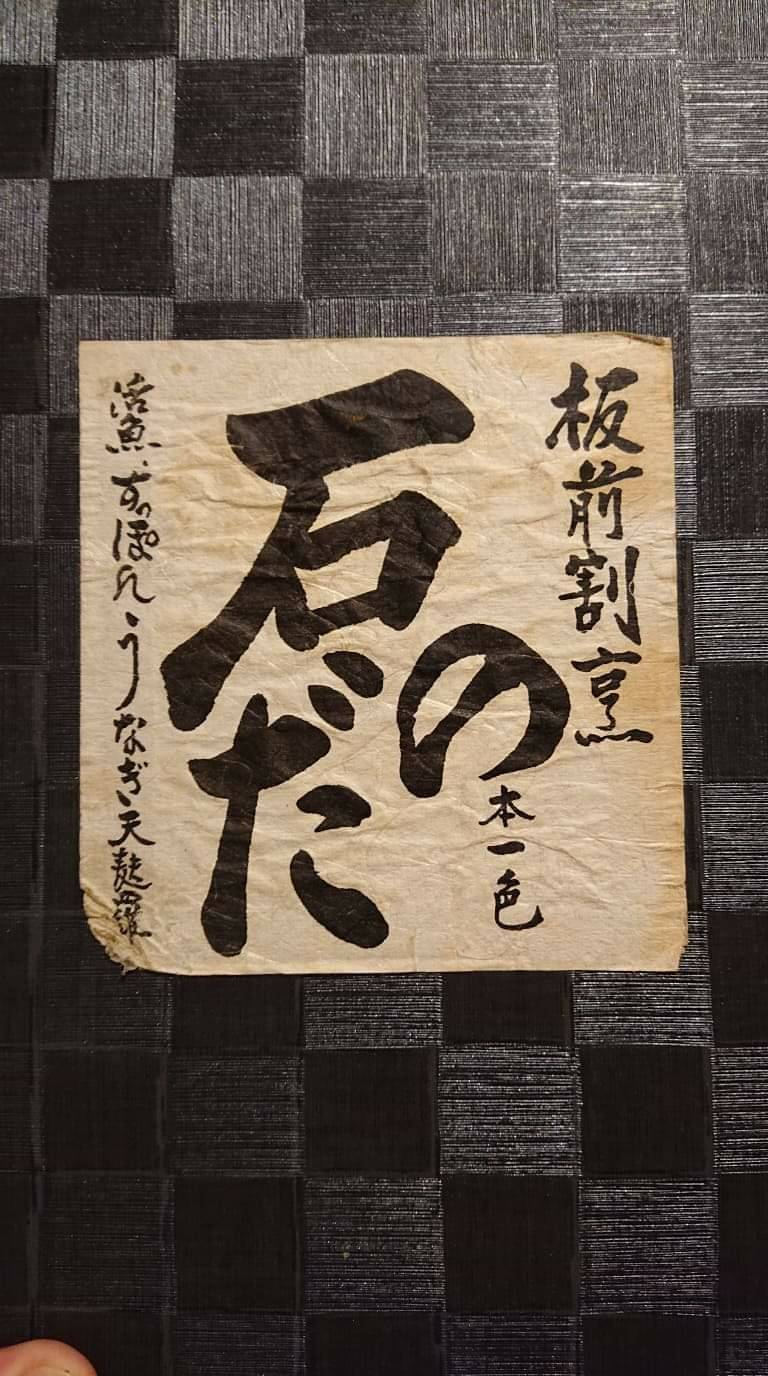 板前割烹
石のだ
本一色
活魚、すっぽん、うなぎ、天麩羅